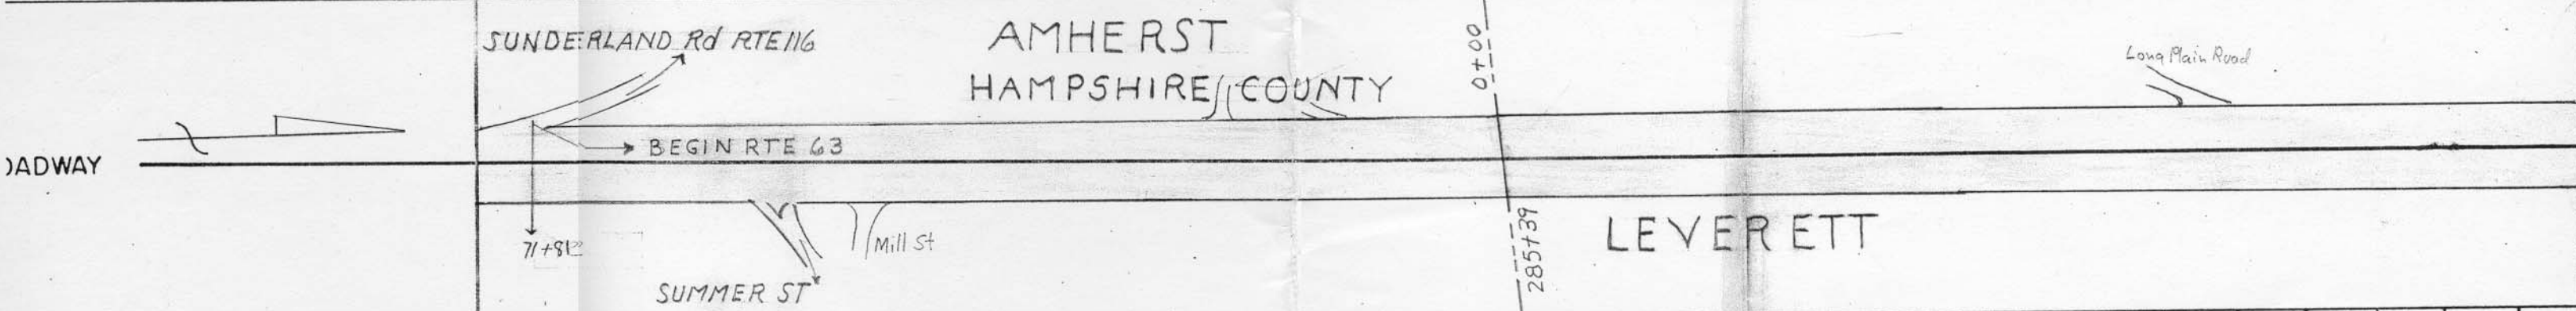 SUNDERLAND Rd RTE 116
AMHERST
HAMPSHIRE COUNTY
0+00
Long Plain Road
BEGIN RTE 63
OADWAY
71+81
Mill St
SUMMER ST
285+39
LEVERETT